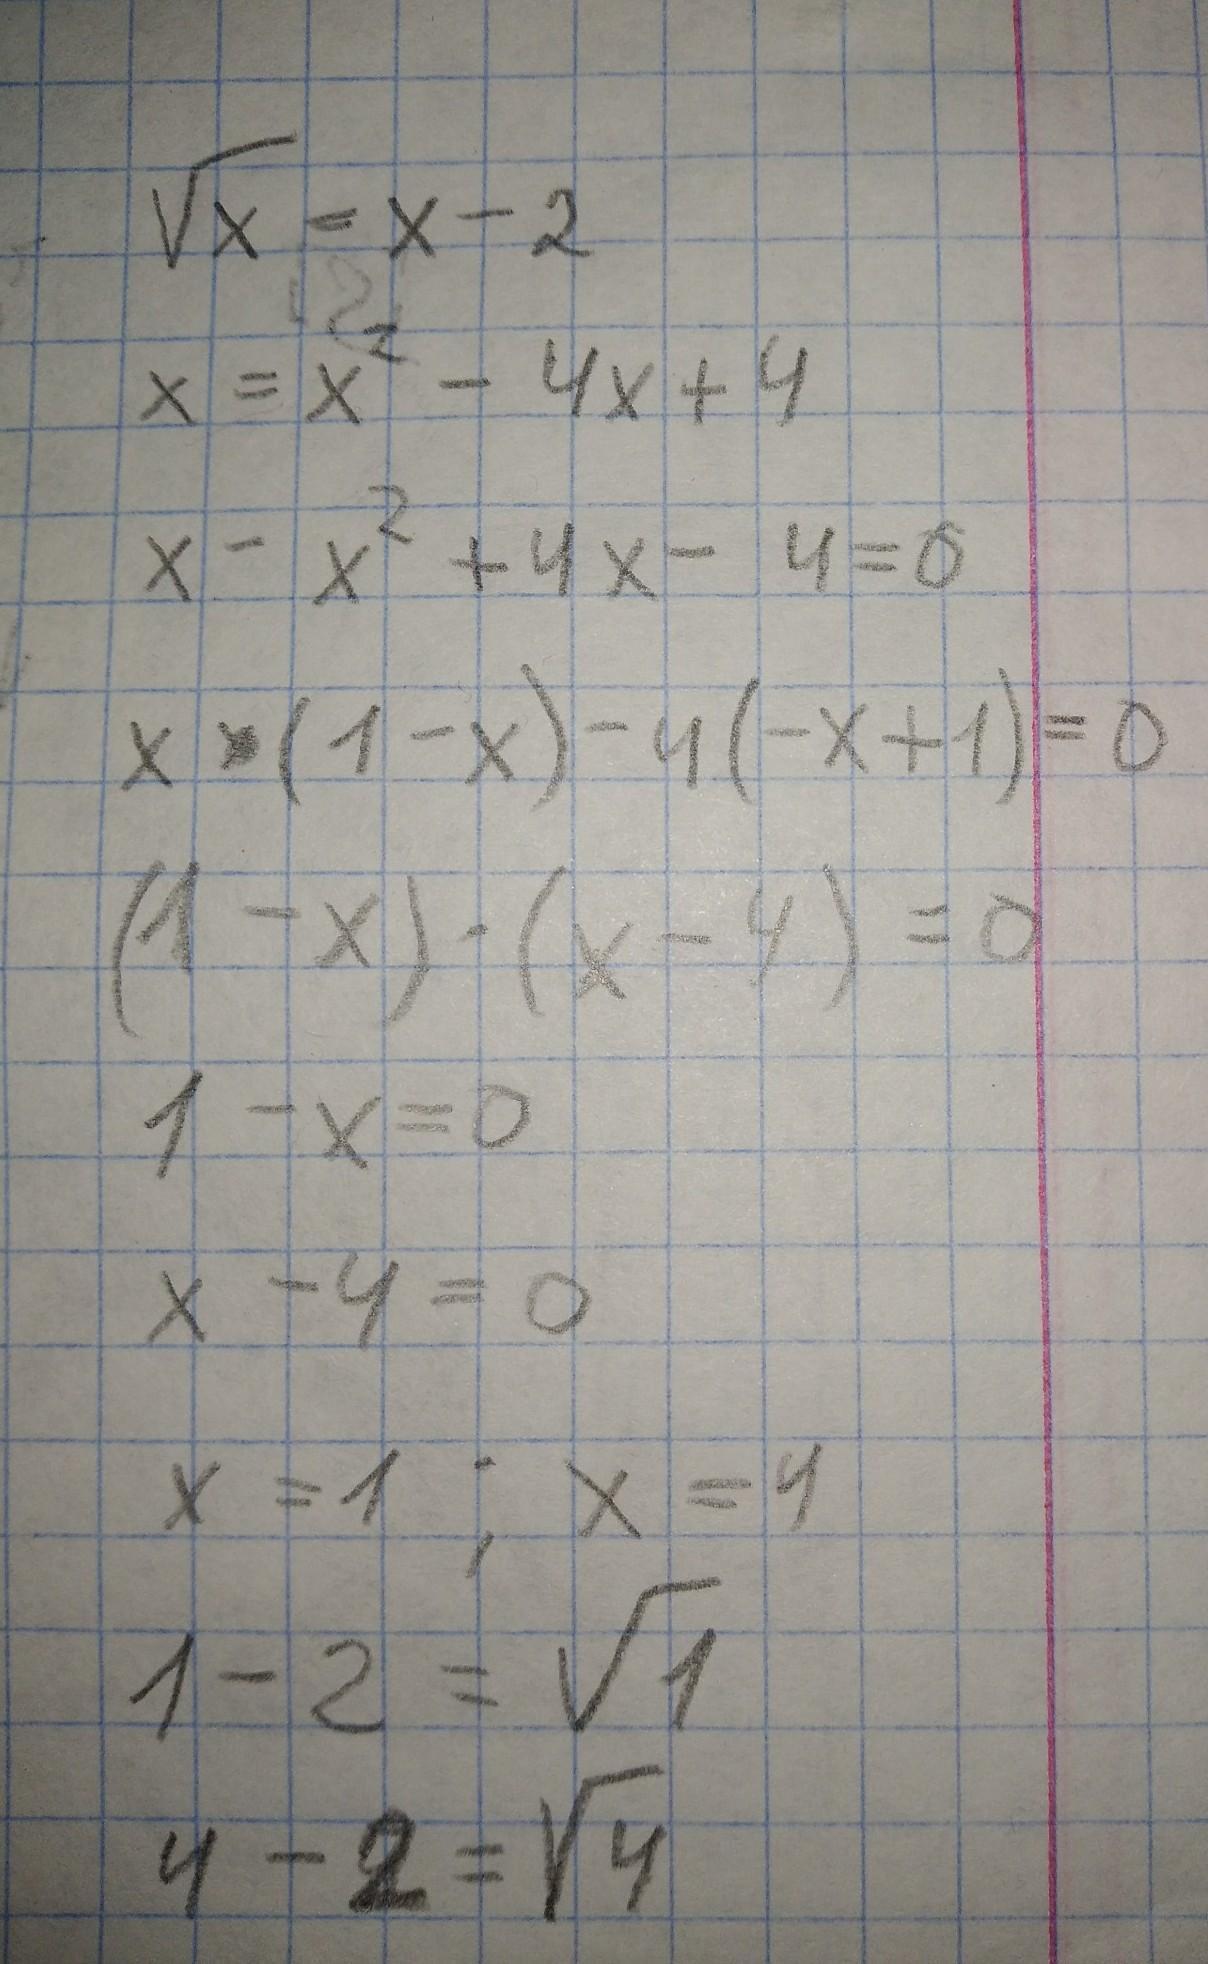 √x = x - 2
x = x² - 4x + 4
x - x² + 4x - 4 = 0
x · (1 - x) - 4(-x + 1) = 0
(1 - x) · (x - 4) = 0
1 - x = 0
x - 4 = 0
x = 1 ; x = 4
1 - 2 = √1
4 - 2 = √4